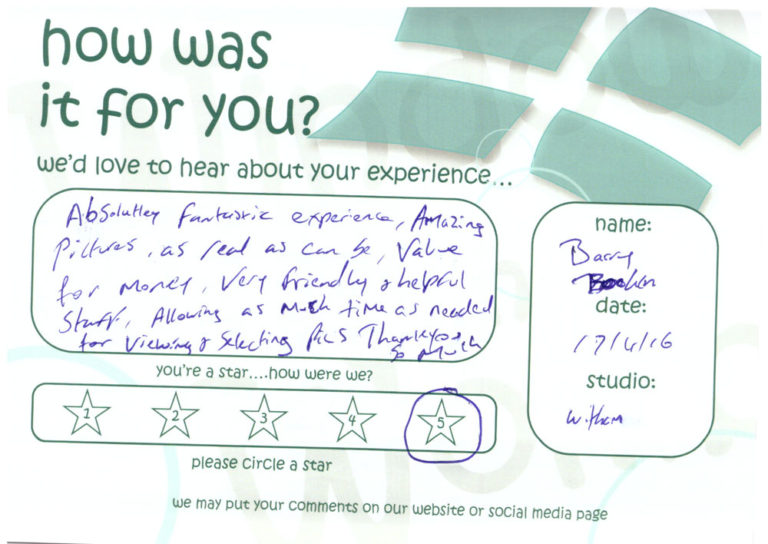 how was
it for you?
we'd love to hear about your experience...
Absolutley fantastic experience, Amazing
Pictures, as real as can be, Value
for money, very friendly & helpful
Staff, Allowing as much time as needed
for viewing & selecting pics Thankyou
so much
name:
Barry
date:
17/4/16
studio:
Witham
you're a star....how were we?
1 2 3 4 5
please circle a star
we may put your comments on our website or social media page